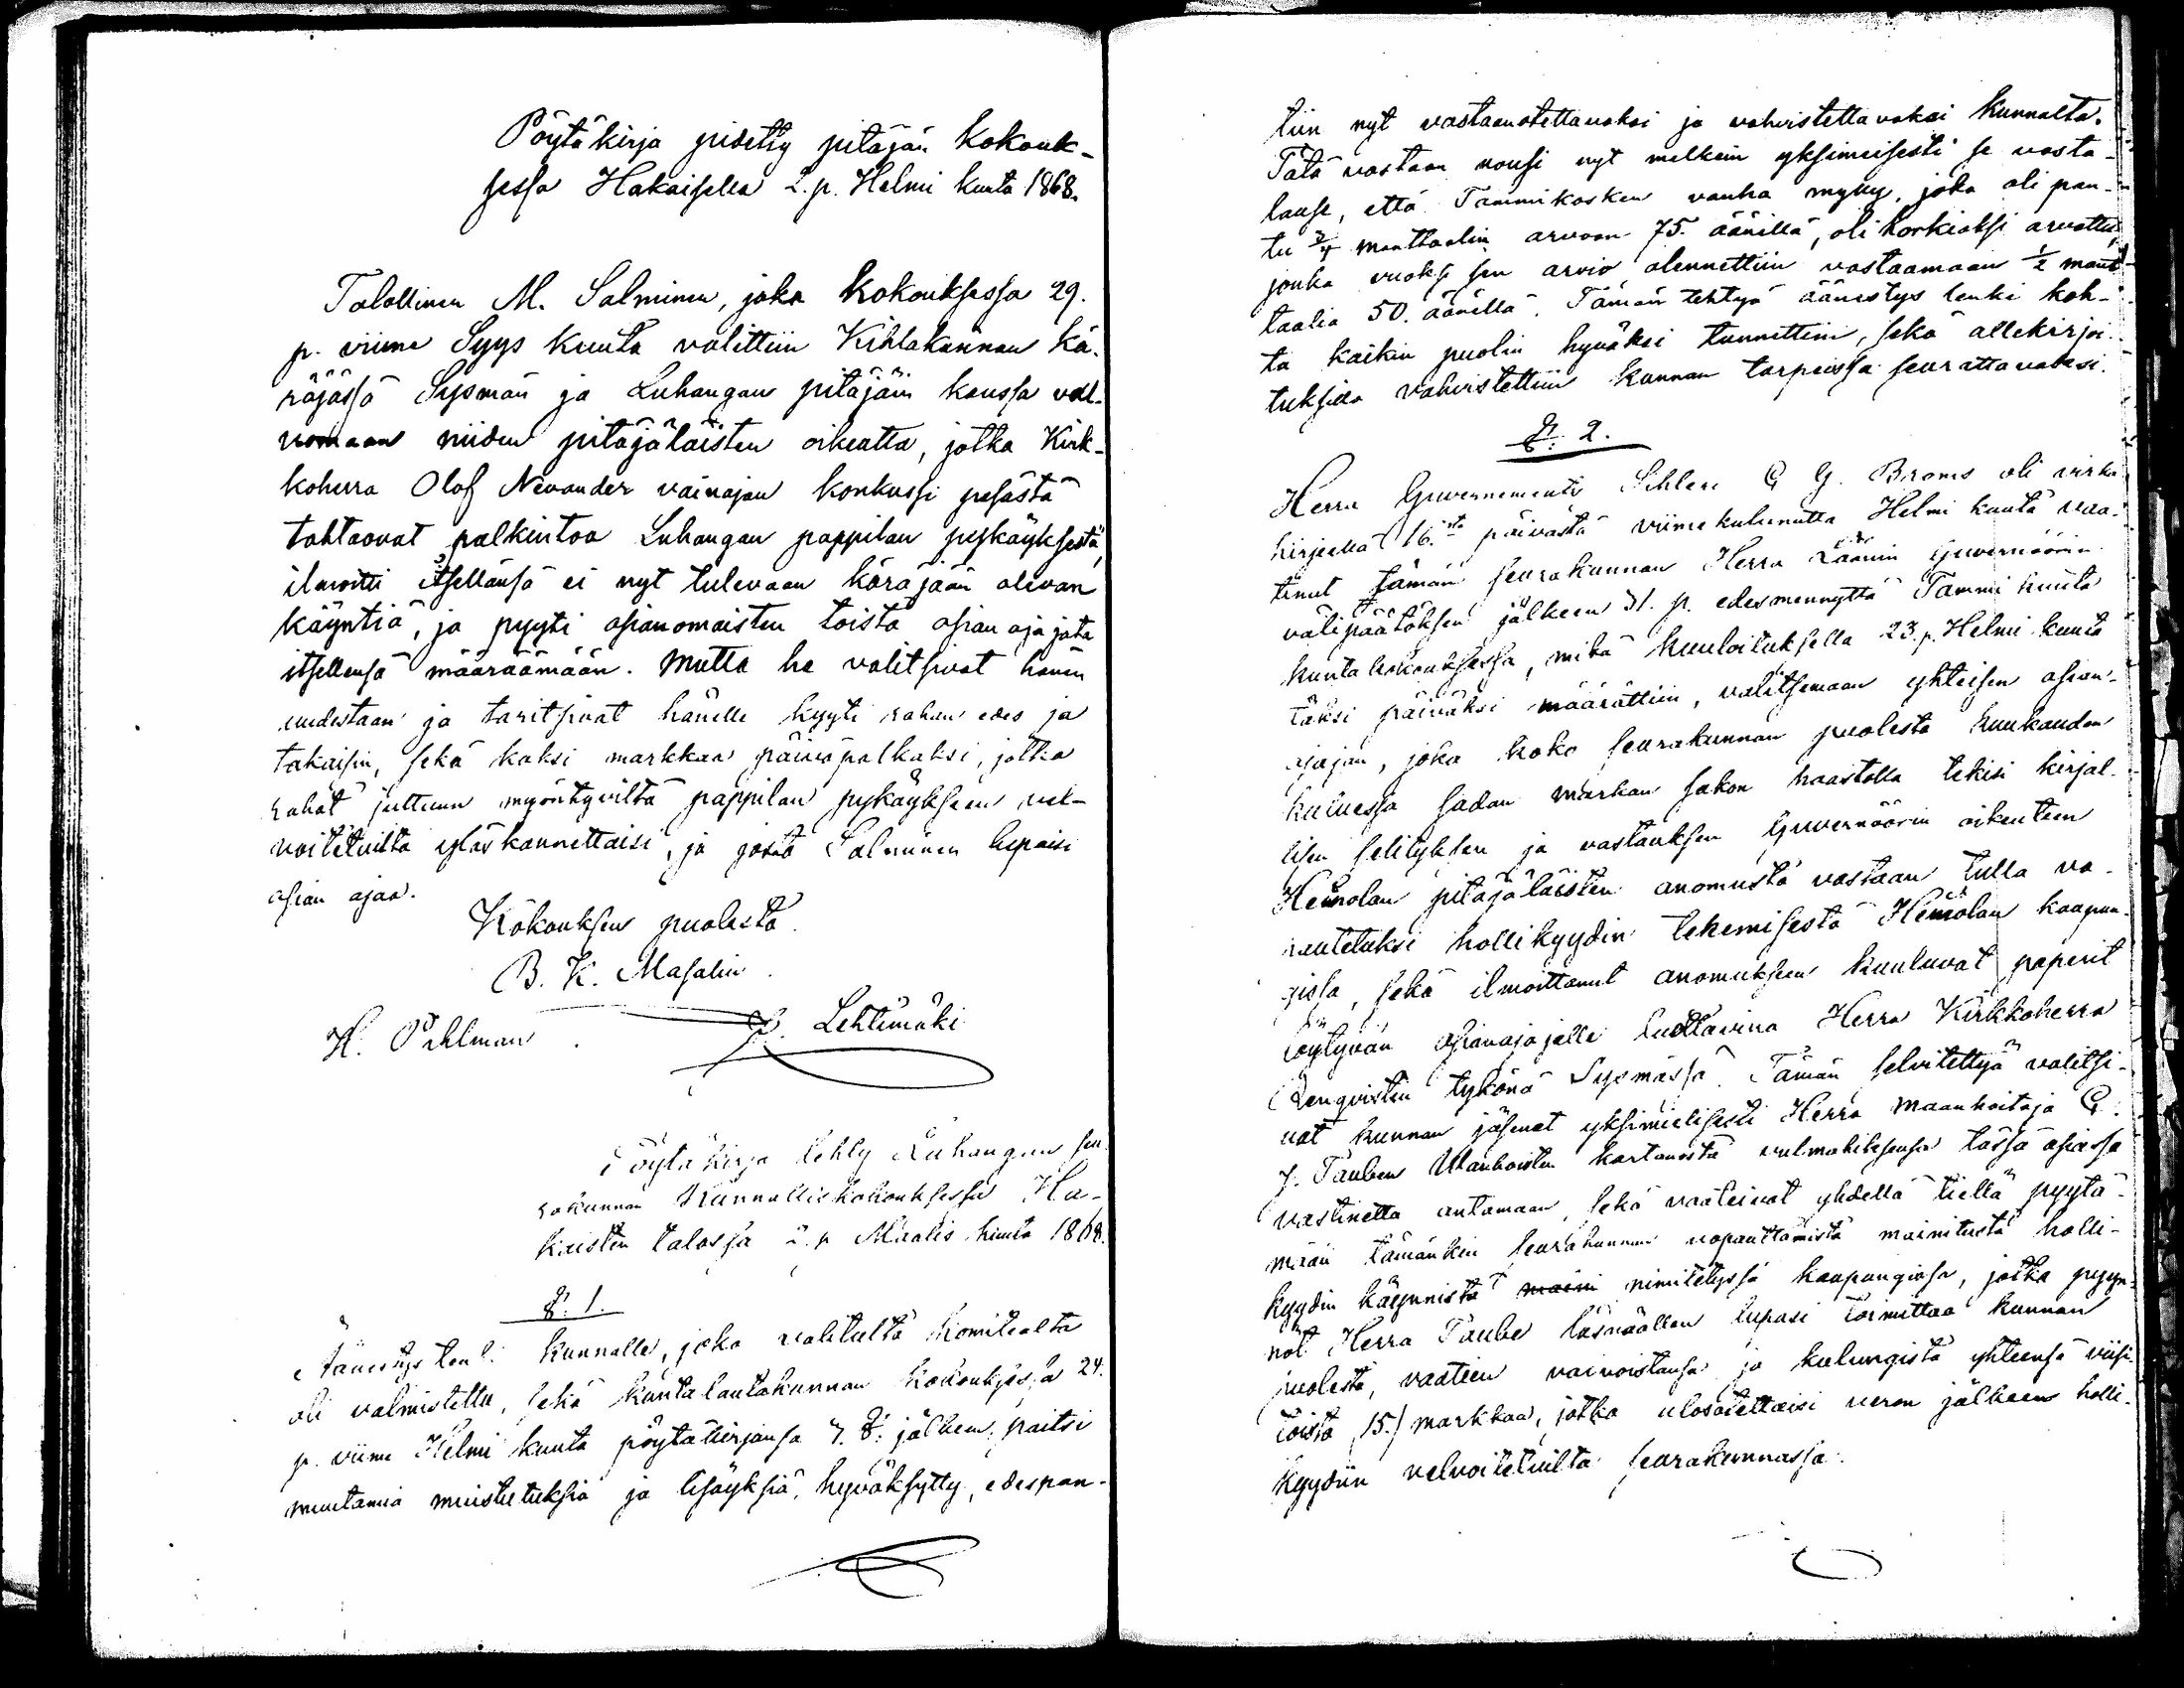 Pöytäkirja pidetty pitäjän Kokouk-
sessa Hakaisella 2. p. Helmi kuuta 1868.
Talollinen M. Salminen, joka Kokouksessa 29.
p. viime Syys kuuta valittiin Kihlakunnan kä-
räjässä Sysmän ja Luhangan pitäjäin kanssa val-
vomaan niiden pitäjäläisten oikeutta, jotka Kirk-
koherra Olof Nevander vainajan konkurssi pesästä
tahtoovat palkintoa Luhangan pappilan pykäyksestä,
ilmoitti itsellänsä ei nyt tulevaan käräjään olevan
käyntiä, ja pyyti asianomaisten toista asian ajajata
itsellensä määräämään. Mutta he valitsivat hänen
uudestaan ja taritsivat hänelle kyyti rahan edes ja
takaisin, sekä kaksi markkaa päivä palkaksi, jotka
rahat juttuun myöntyviltä pappilan pykäykseen vel-
voitetuilta ylöskannettaisi, ja josta Salminen lupaisi
asian ajaa.
Kokouksen puolesta
B. K. Masalin
H. Påhlman. Lehtimäki
Pöytäkirja tehty Luhangan seu-
rakunnan Kunnalliskokouksessa Ha-
kaisten talossa 2. p. Maalis kuuta 1868.
§. 1.
Äänestys lenki Kunnalle, joka valitulta Komitealta
oli valmistettu, sekä kuntalautakunnan kokouksessa 24.
p. viime Helmi kuuta pöytäkirjansa 7. §: jälkeen, paitsi
muutamia muistutuksia ja lisäyksiä, hyväksytty, edespan-
tiin nyt vastaanotettavaksi ja vahvistettavaksi Kunnalta.
Tätä vastaan nousi nyt melkein yksimeisesti se vasta-
lause, että Tammikosken vanha mylly, joka oli pan-
tu 3/4 manttaalin arvoon 75. äänillä, oli korkiaksi arvattu,
jonka vuoksi sen arvio alennettiin vastaamaan 1/2 mant-
taalia 50. äänillä. Tämän tehtyä äänestys lenki koh-
ta kaikin puolin hyväksi tunnettiin, sekä allekirjoi-
tuksilla vahvistettiin kunnan tarpeissa seurattavaksi.
§. 2.
Herra Guvernements Sihteri G. G. Broms oli virka
kirjeellä 16.sta päivästä viimekulunutta Helmi kuuta vaa-
tinut tämän seurakunnan Herra Läänin Guvernöörin
välipäätöksen jälkeen 31. p. edesmennyttä Tammi kuuta
kuntakokouksessa, mikä kuuloituksella 23. p. Helmi kuuta
täksi päiväksi määrättiin, valitsemaan yhteisen asian-
ajajan, joka koko seurakunnan puolesta kuukauden
kuluessa sadan markan sakon haastolla tekisi kirjal-
lisen selityksen ja vastauksen Guvernöörin oikeuteen
Heinolan pitäjäläisten anomusta vastaan tulla va-
pautetuksi hollikyydin tekemisestä Heinolan kaupun-
gissa, sekä ilmoittanut anomukseen kuuluvat paperit
löytyvän asianajajalle luettavina Herra Kirkkoherra
Renqvistin tykönä Sysmässä. Tämän selvitettyä valitsi-
vat kunnan jäsenet yksimielisesti Herra Maanhoitaja G.
J. Tauben kartanosta valmahiksensa tässä asiassa
vastinetta antamaan, sekä vaateivat yhdellä tiellä pyytä-
mään tämänkin seurakunnan vapauttamista mainitusta holli-
kyydin käynnistä maini nimitetyssä kaupungissa, jotka pyyn-
nöt Herra Taube läsnäollen lupasi toimittaa kunnan
puolesta, vaatien vaivoistansa ja kulungista yhteensä viisi-
toista (15.) markkaa, jotka ulosotettaisi veron jälkeen holli-
kyydiin velvoitetuilta seurakunnassa.